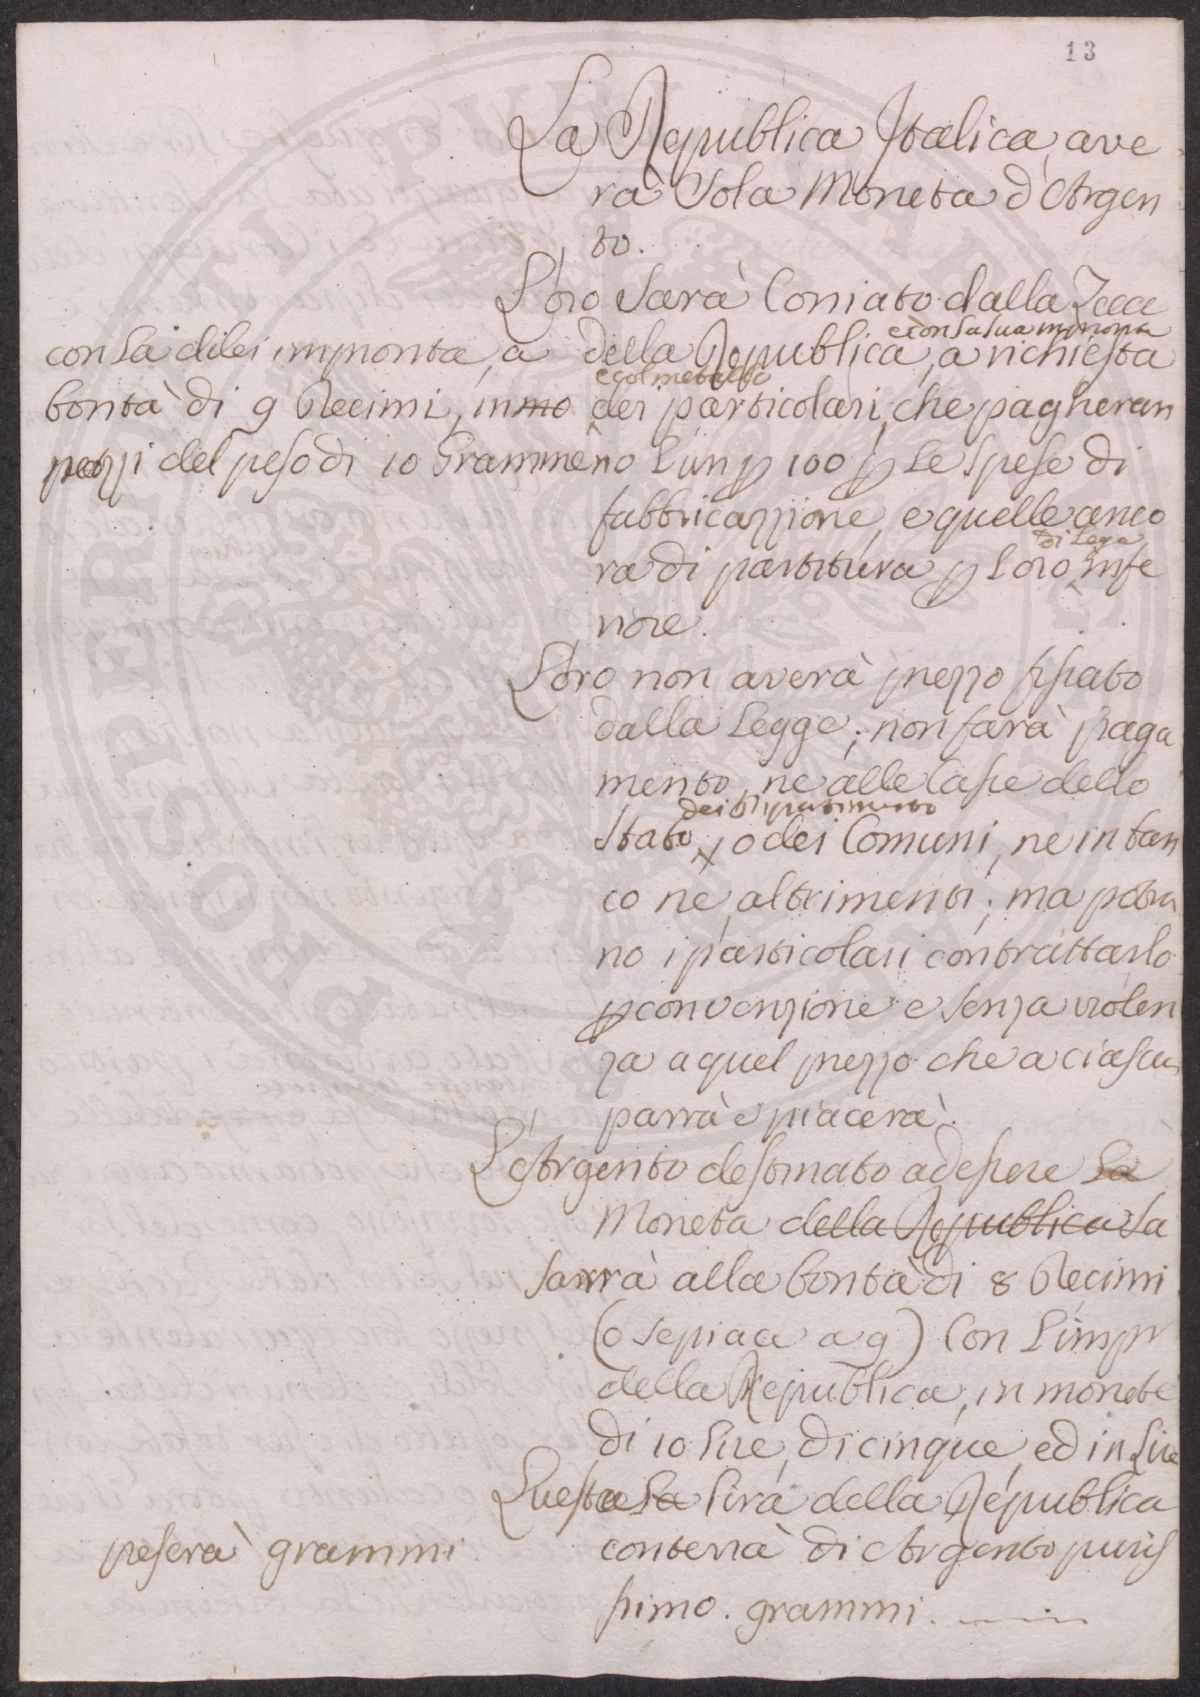 13
La Republica Italica ave
rà sola Moneta d'Argen
to.
L'oro sarà Coniato dalla Zecca
e con la sua impronta
della Republica, a richiesta
e col metallo
dei particolari, che pagheran
no l'un p 100 p le spese di
fabbricazzione, e quelle anco
di Lega
ra di partitura p l'oro infe
riore.
con la di lei impronta, a
bontà di 9 Decimi, in
pezzi del peso di 10 Gramme
L'oro non averà prezzo fissato
dalla Legge; non farà paga
mento, ne alle Casse dello
dei Dipartimento
Stato, o dei Comuni, ne in ban
co ne altrimenti; ma potra
no i particolari contrattarlo
p convenzione e senza violen
za a quel prezzo che a ciascu
parrà e piacerà.
L'Argento destinato ad essere la
Moneta della Republica sa
sarà alla bontà di 8 Decimi
(o se piace a 9) Con l'impr
della Republica, in monete
di 10 lire, di cinque, ed in Lire
Questa la Lira della Republica
conterrà di Argento puris
simo. grammi.
peserà grammi